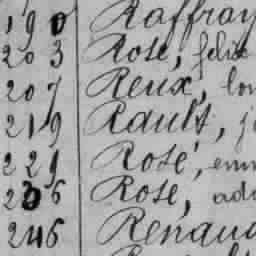 190 Raffray
203 Rose, félix
207 Reux, lou
219 Rault, j
229 Rose, emm
236 Rose, ad
246 Renau